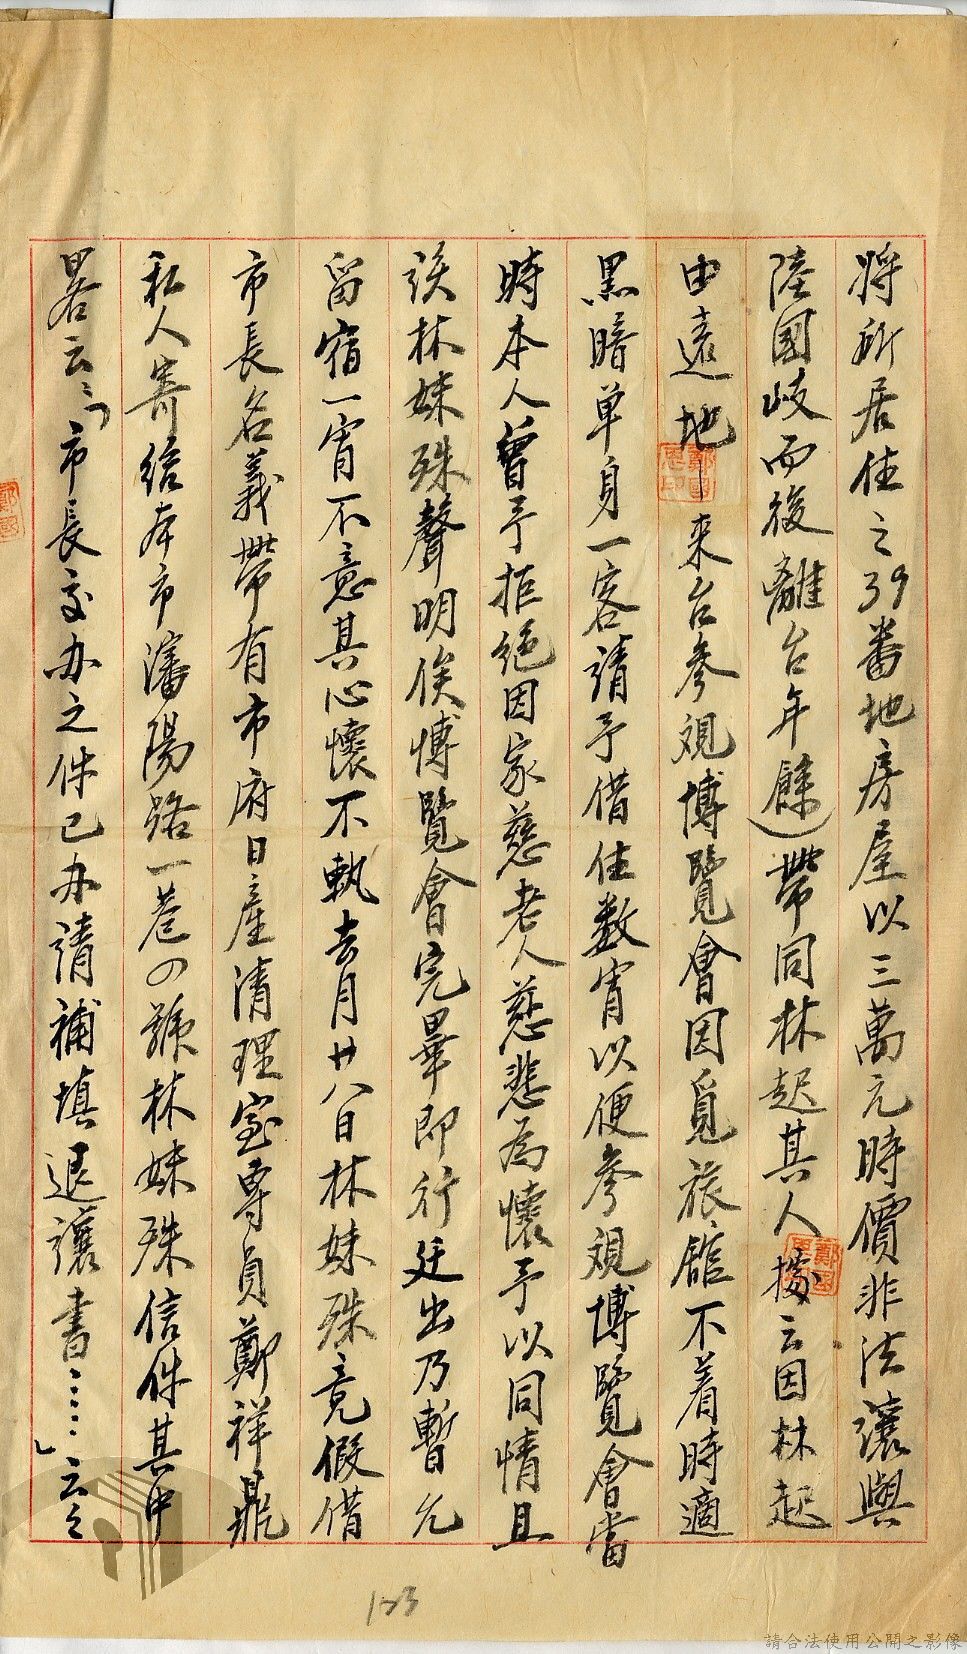 將所居住之39番地房屋以三萬元時價非法讓與
陸國岐而後離台年餘)帶同林起其人據云因林起
由遠地-来台參观博覽會因覓旅館不着時適
黑暗单身一客請予借住数宵以便參观博覽會當
時本人曾予拒绝因家慈老人慈悲為懷予以同情且
該林妹殊聲明俟博覽會完畢即行迁出乃暫允
留宿一宵不意其心懷不軌去月廿八日林妹殊竟假借
市長名義帶有市府日產清理室専員鄭祥鼎
私人寄给本市瀋陽路一巷の號林妹殊信件其中
畧云:「市長交办之件已办請補填退讓書……」云云
123
請合法使用公開之影像